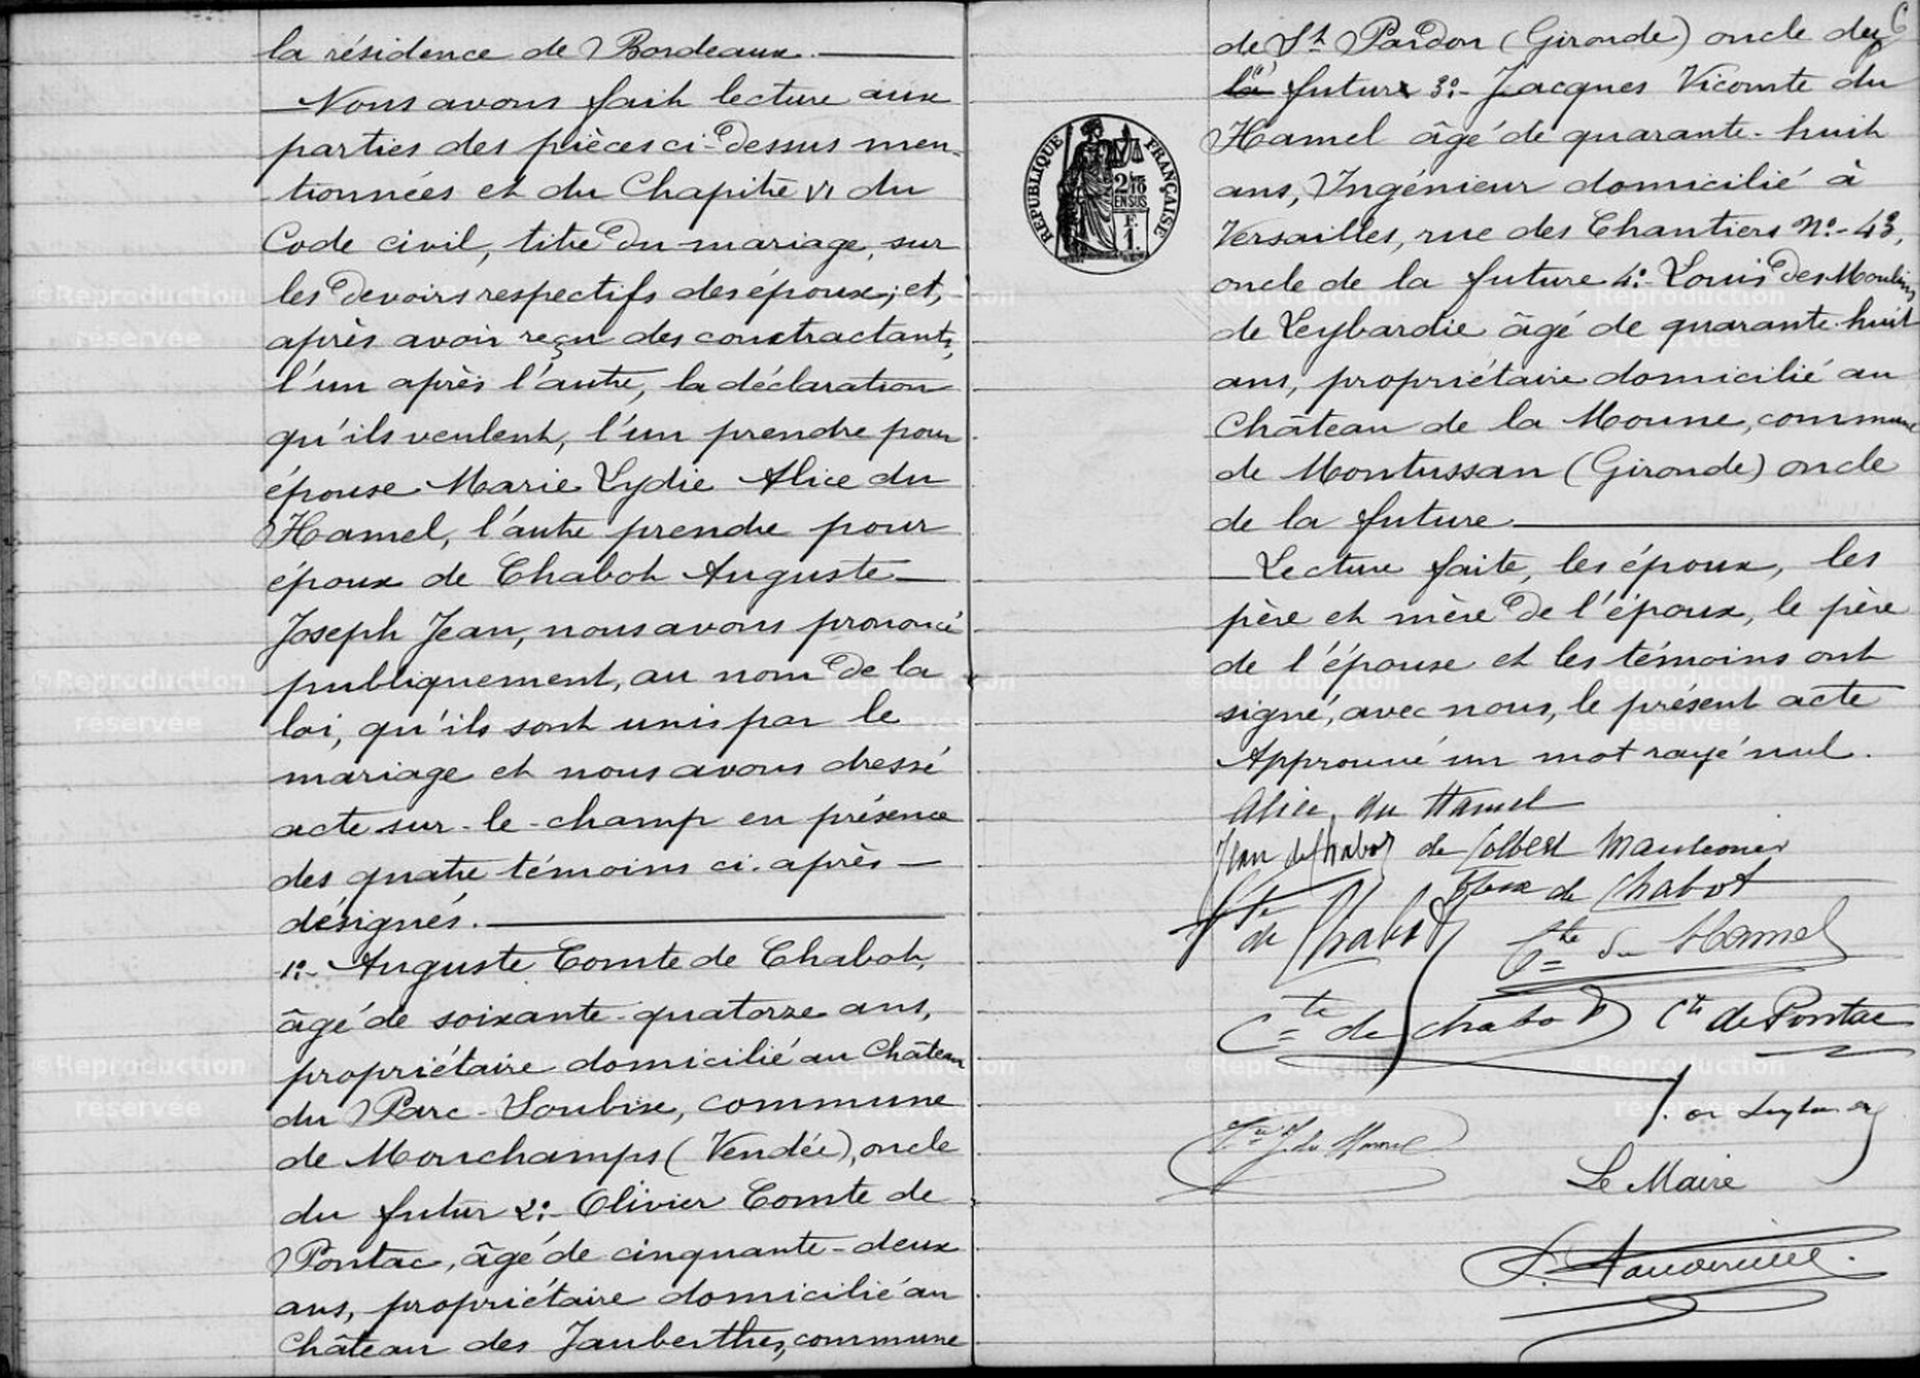 la résidence de Bordeaux.
Nous avons fait lecture aux
parties des pièces ci-dessus men-
tionnées et du Chapitre VI du
Code civil, titre du mariage, sur
les devoirs respectifs des époux; et,
après avoir reçu des contractants,
l'un après l'autre, la déclaration
qu'ils veulent, l'un prendre pour
épouse Marie Lydie Alice du
Hamel, l'autre prendre pour
époux de Chabot Auguste
Joseph Jean, nous avons prononcé
publiquement, au nom de la
loi, qu'ils sont unis par le
mariage et nous avons dressé
acte sur-le-champ en présence
des quatre témoins ci-après
désignés.
1º- Auguste Comte de Chabot,
âgé de soixante-quatorze ans,
propriétaire domicilié au Château
du Parc-Soubise, commune
de Mouchamps (Vendée), oncle
du futur 2º- Olivier Comte de
Pontac, âgé de cinquante-deux
ans, propriétaire domicilié au
Château des Jauberthes, commune
de St Pardon (Gironde) oncle du
la future 3º- Jacques Vicomte du
Hamel âgé de quarante-huit
ans, Ingénieur domicilié à
Versailles, rue des Chantiers Nº-43,
oncle de la future 4º- Louis Des Moulins
de Leybardie âgé de quarante-huit
ans, propriétaire domicilié au
Château de la Moune, commune
de Montussan (Gironde) oncle
de la future
Lecture faite, les époux, les
père et mère de l'époux, le père
de l'épouse et les témoins ont
signé, avec nous, le présent acte
Approuvé un mot rayé nul.
Alice du Hamel
Jean de Chabot de Colbert Maulevrier
de Chabot
Vte de Chabot
Cte du Hamel
Cte de Chabot Cte de Pontac
Vte J. du Hamel
Le Maire
RÉPUBLIQUE FRANÇAISE
2/10
EN SUS
F
1.
©Reproduction
réservée